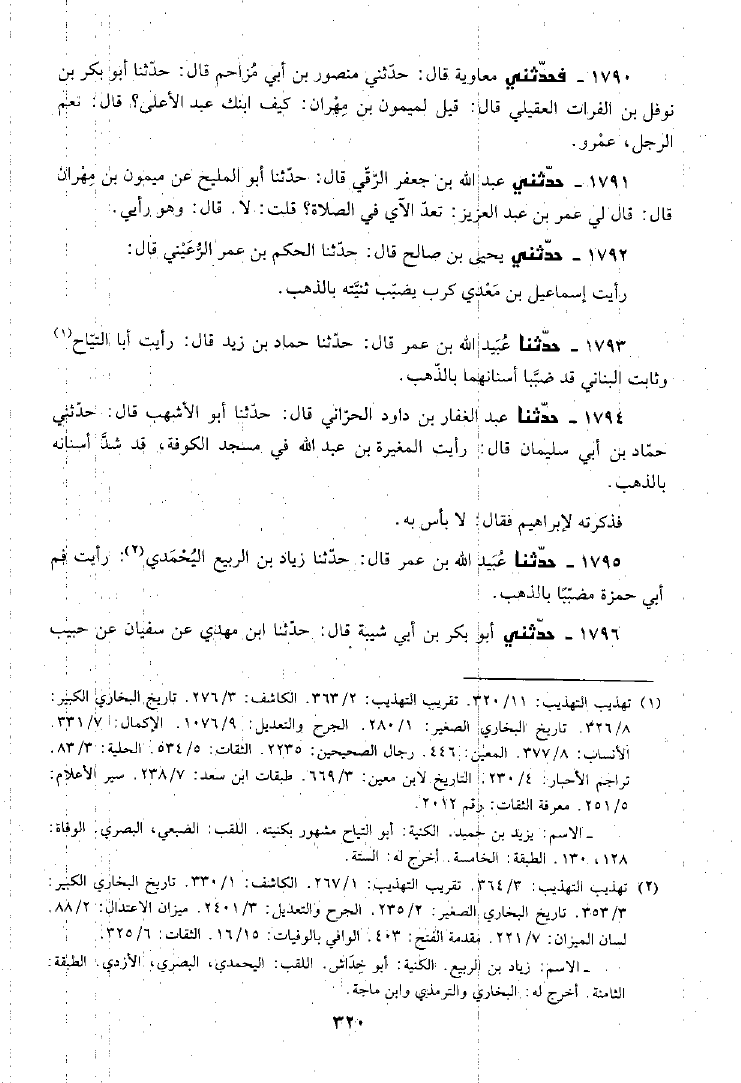 ١٧٩٠ ـ فحدّثني معاوية قال: حدّثني منصور بن أبي مُزاحم قال: حدّثنا أبو بكر بن
نوفل بن الفرات العقيلي قال: قيل لميمون بن مِهْران: كيف ابنك عبد الأعلى؟ قال: نعم
الرجل، عمْرو.
١٧٩١ ـ حدّثني عبد الله بن جعفر الرّقّي قال: حدّثنا أبو المليح عن ميمون بن مِهْران
قال: قال لي عمر بن عبد العزيز: تعدّ الآي في الصلاة؟ قلت: لا. قال: وهو رأيي.
١٧٩٢ ـ حدّثني يحيى بن صالح قال: حدّثنا الحكم بن عمر الرُّعَيْني قال:
رأيت إسماعيل بن مَعْدي كرب يضبّب ثنيَّته بالذهب.
١٧٩٣ ـ حدّثنا عُبَيد الله بن عمر قال: حدّثنا حماد بن زيد قال: رأيت أبا التيّاح(١)
وثابت البناني قد ضبَّبا أسنانهما بالذّهب.
١٧٩٤ ـ حدّثنا عبد الغفار بن داود الحرّاني قال: حدّثنا أبو الأشهب قال: حدّثني
حمّاد بن أبي سليمان قال: رأيت المغيرة بن عبد الله في مسجد الكوفة، قد شدَّ أسنانه
بالذهب.
فذكرته لإبراهيم فقال: لا بأس به.
١٧٩٥ ـ حدّثنا عُبَيد الله بن عمر قال: حدّثنا زياد بن الربيع اليُحْمَدي(٢): رأيت فم
أبي حمزة مضبّبًا بالذهب.
١٧٩٦ ـ حدّثني أبو بكر بن أبي شيبة قال: حدّثنا ابن مهدي عن سفيان عن حبيب
(١) تهذيب التهذيب: ٣٢٠/١١. تقريب التهذيب: ٣٦٣/٢. الكاشف: ٢٧٦/٣. تاريخ البخاري الكبير:
٣٢٦/٨. تاريخ البخاري الصغير: ٢٨٠/١. الجرح والتعديل: ١٠٧٦/٩. الإكمال: ٣٣١/٧.
الأنساب: ٣٧٧/٨. المعين: ٤٤٦. رجال الصحيحين: ٢٢٣٥. الثقات: ٥٣٤/٥. الحلية: ٨٣/٣.
تراجم الأحبار: ٢٣٠/٤. التاريخ لابن معين: ٦٦٩/٣. طبقات ابن سعد: ٢٣٨/٧. سير الأعلام:
٢٥١/٥. معرفة الثقات: رقم ٢٠١٢.
ـ الاسم: يزيد بن حميد. الكنية: أبو التياح مشهور بكنيته. اللقب: الضبعي، البصري. الوفاة:
١٢٨، ١٣٠. الطبقة: الخامسة. أخرج له: الستة.
(٢) تهذيب التهذيب: ٣٦٤/٣. تقريب التهذيب: ٢٦٧/١. الكاشف: ٣٣٠/١. تاريخ البخاري الكبير:
٣٥٣/٣. تاريخ البخاري الصغير: ٢٣٥/٢. الجرح والتعديل: ٢٤٠١/٣. ميزان الاعتدال: ٨٨/٢.
لسان الميزان: ٢٢١/٧. مقدمة الفتح: ٤٠٣. الوافي بالوفيات: ١٦/١٥. الثقات: ٣٢٥/٦.
ـ الاسم: زياد بن الربيع. الكنية: أبو خِداش. اللقب: اليحمدي، البصري، الأزدي. الطبقة:
الثامنة. أخرج له: البخاري والترمذي وابن ماجة.
٣٢٠